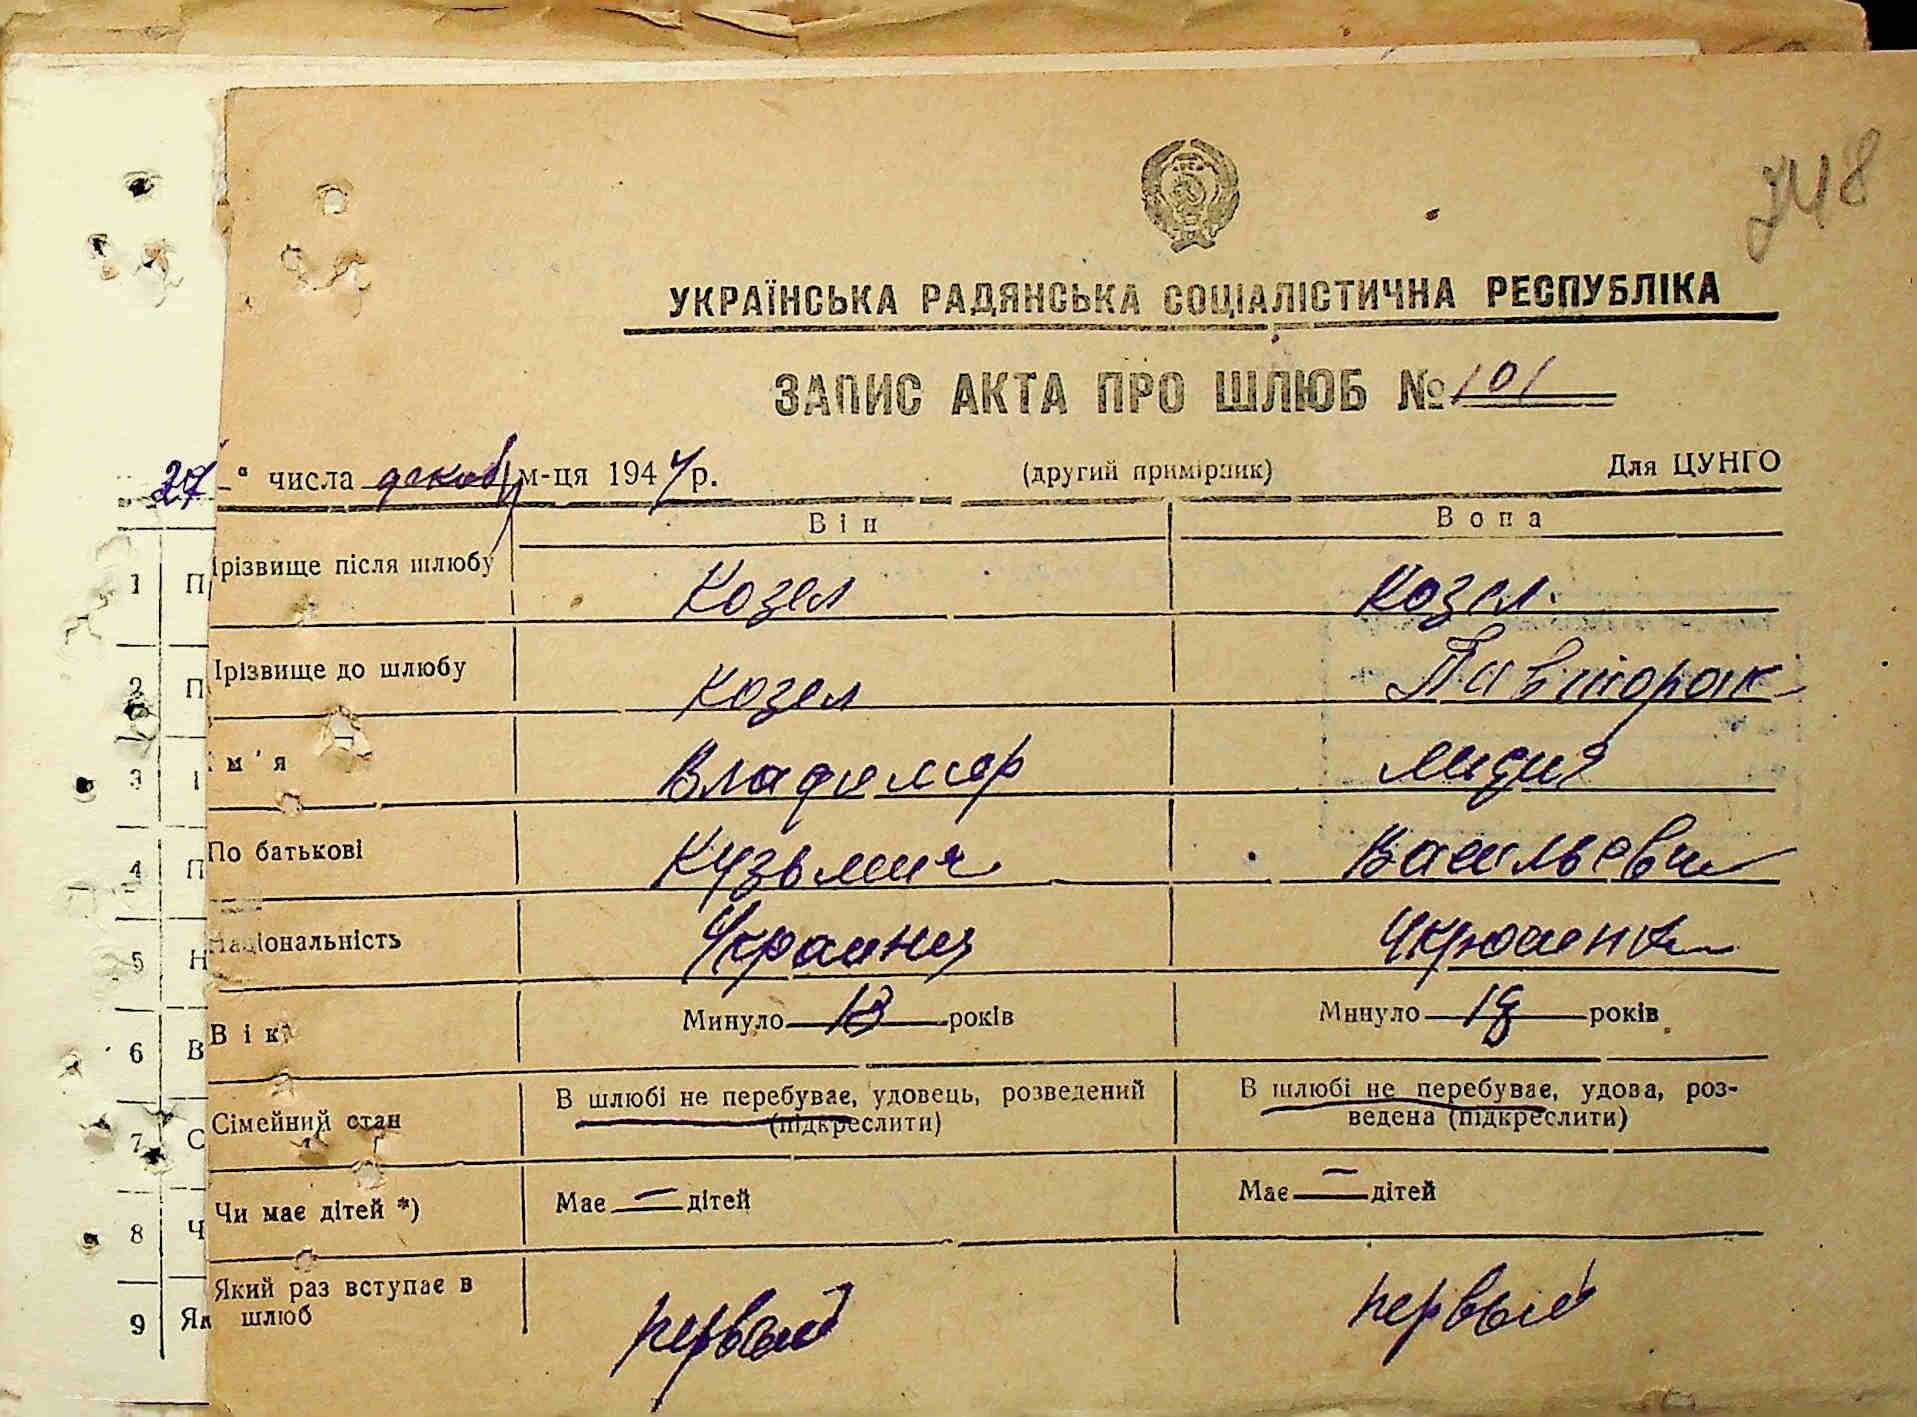 248
УКРАЇНСЬКА РАДЯНСЬКА СОЦІАЛІСТИЧНА РЕСПУБЛІКА
ЗАПИС АКТА ПРО ШЛЮБ № 101
27 " числа декабр м-ця 1944 р. (другий примірник) Для ЦУНГО
Він Вона
1 П різвище після шлюбу Козел Козел
2 П різвище до шлюбу Козел
3 І м'я Владимир Лидия
4 П По батькові Кузьмич Васильевн
5 Н Національність Украинец Украинка
6 В Вік Минуло 18 років Минуло 18 років
7 С Сімейний стан В шлюбі не перебуває, удовець, розведений (підкреслити) В шлюбі не перебуває, удова, роз-
ведена (підкреслити)
8 Ч Чи має дітей *) Має — дітей Має — дітей
9 Як Який раз вступає в
шлюб первый первый